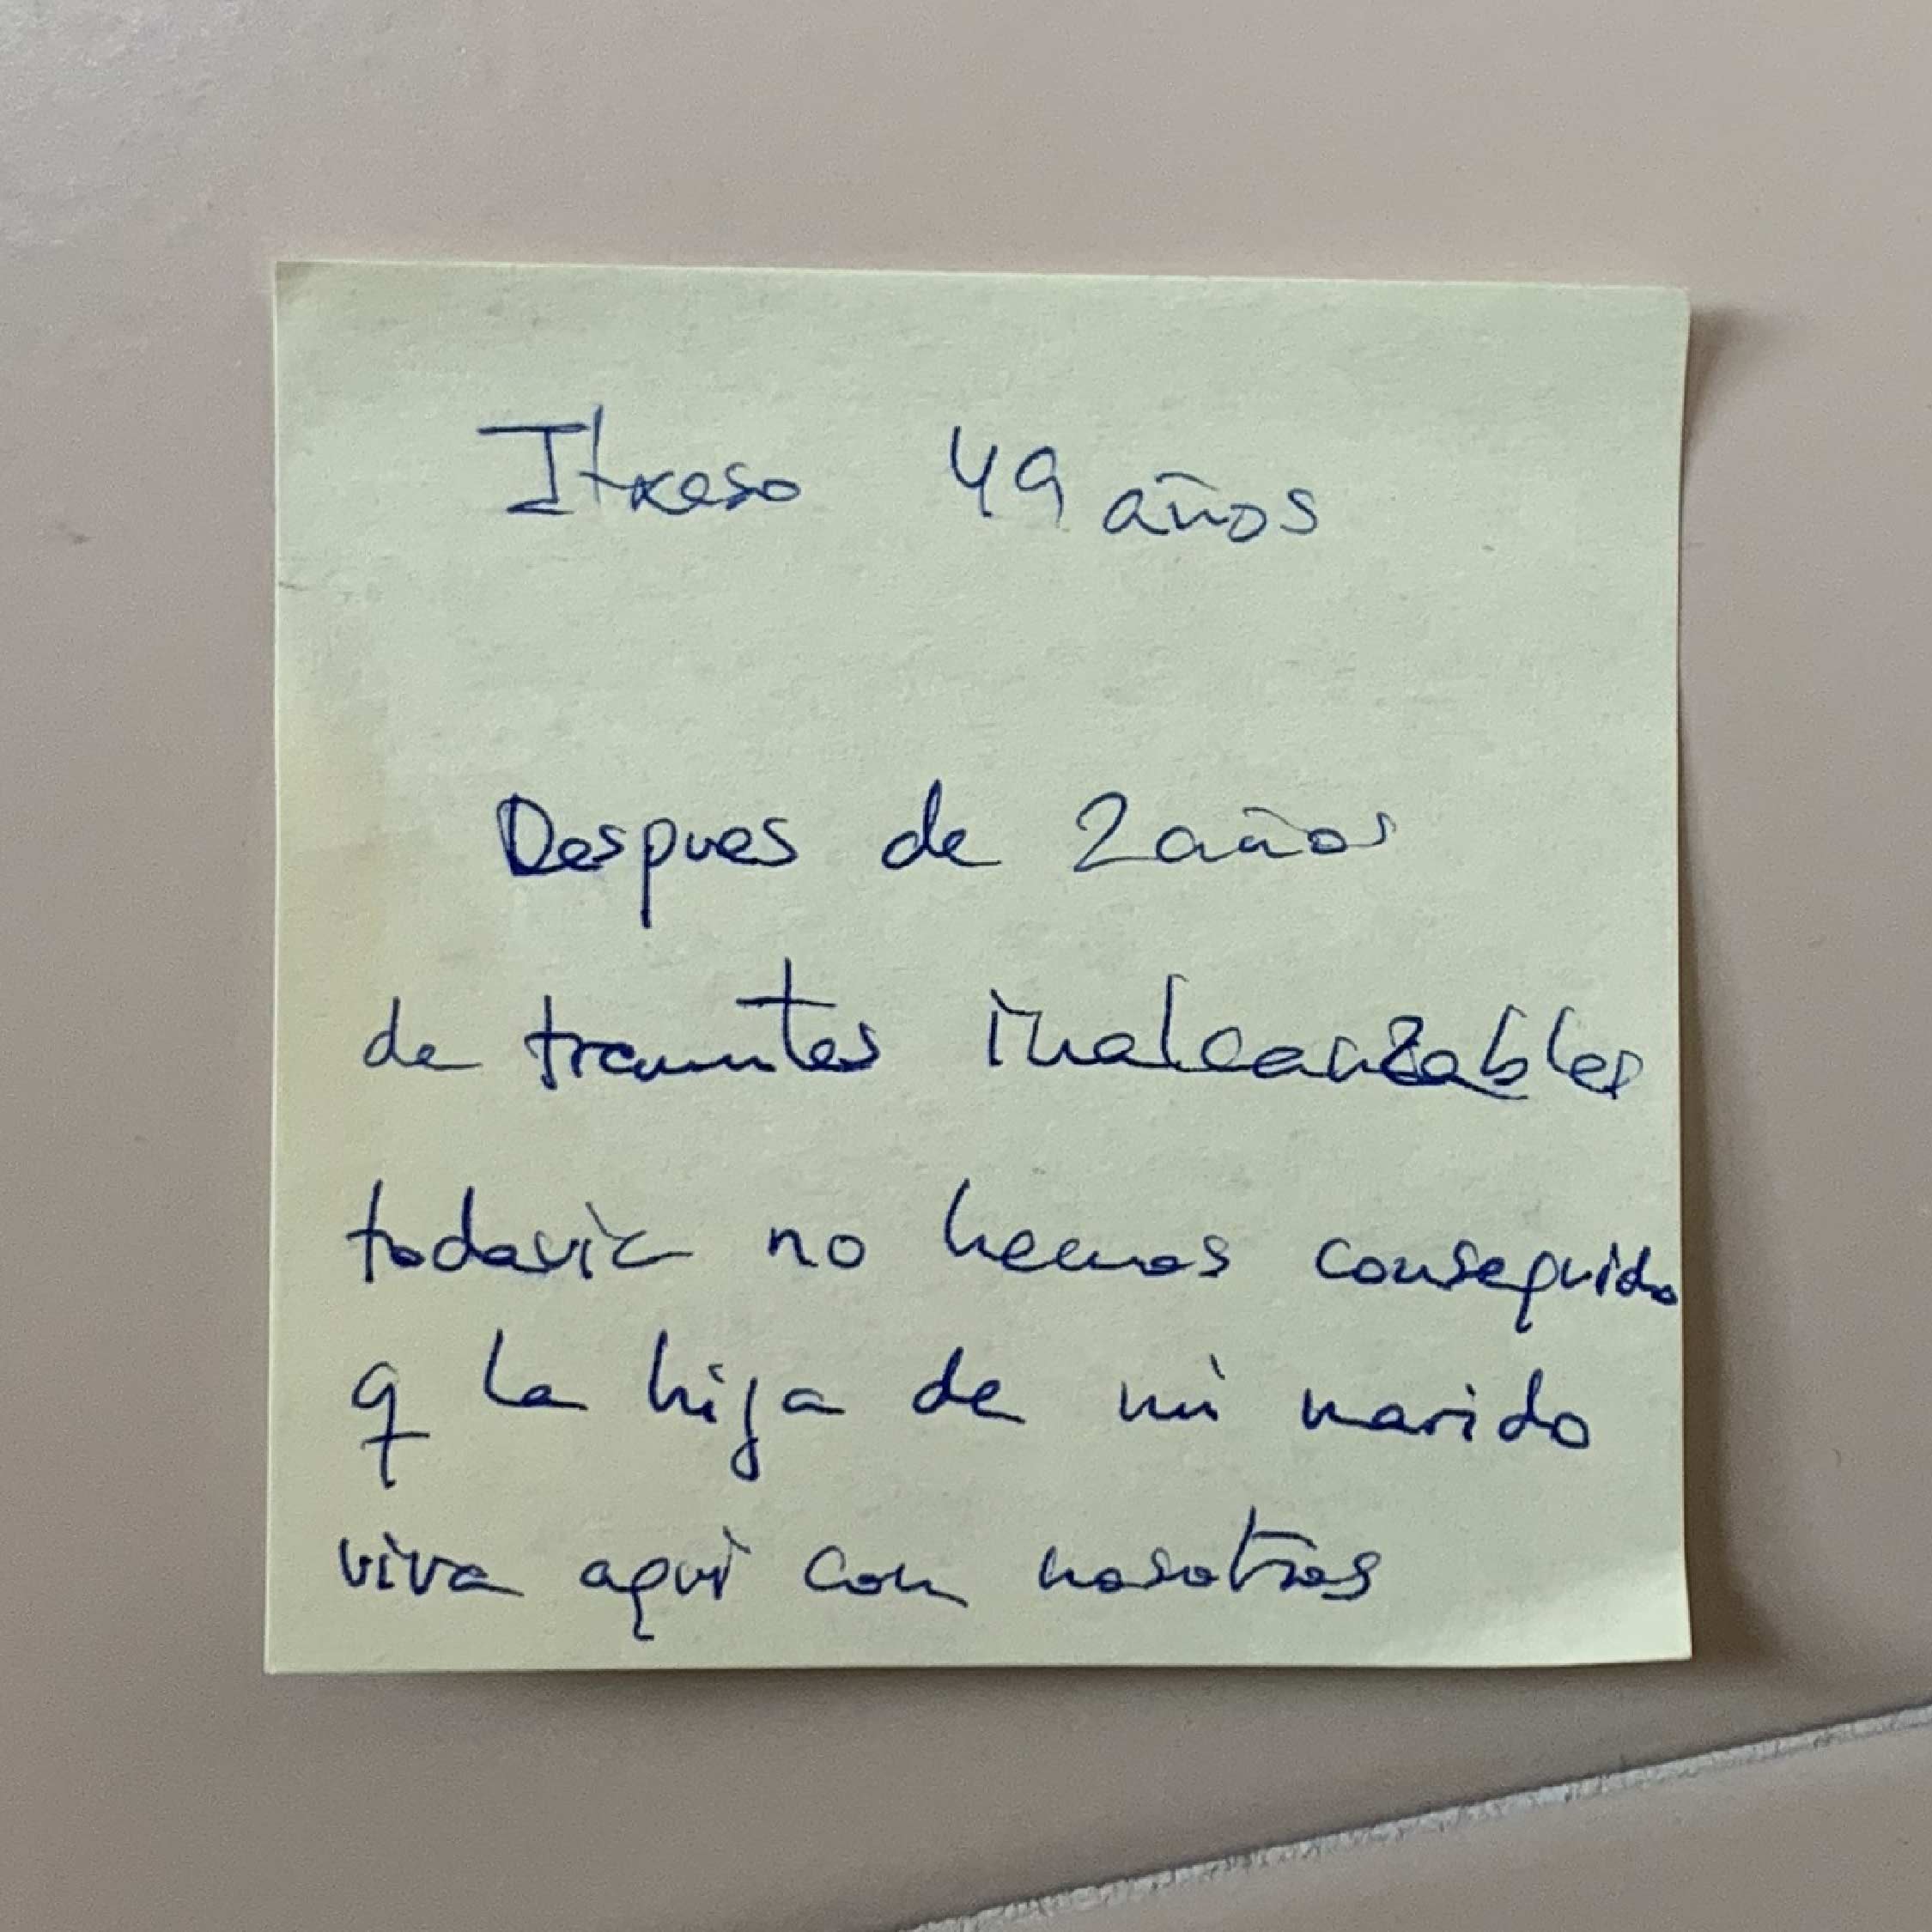 Itxaso 49 años
Despues de 2 años
de tramites inalcanzables
todavia no hemos conseguido
q la hija de mi marido
viva aqui con nosotros